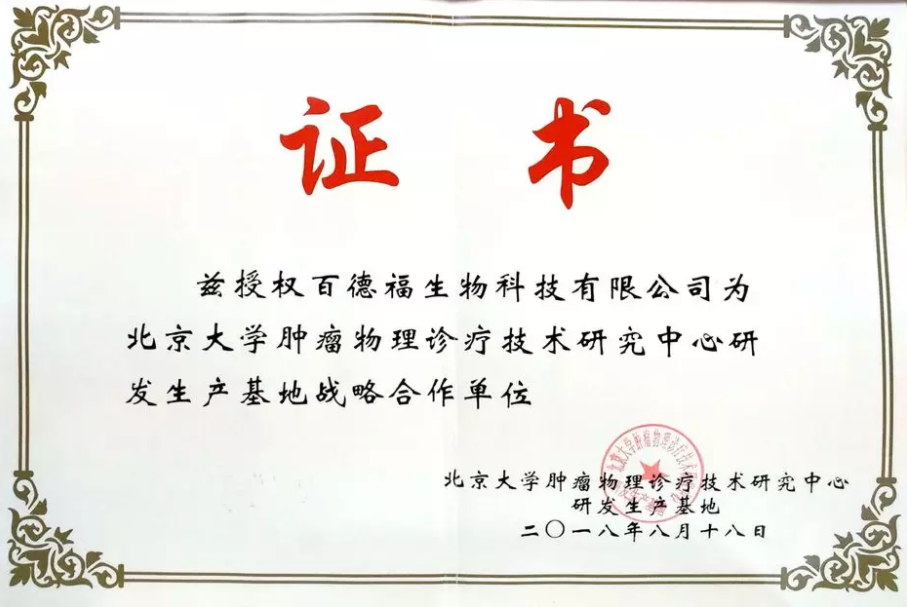 证书
兹授权百德福生物科技有限公司为
北京大学肿瘤物理诊疗技术研究中心研
发生产基地战略合作单位
北京大学肿瘤物理诊疗技术研究中心
研发生产基地
二〇一八年八月十八日